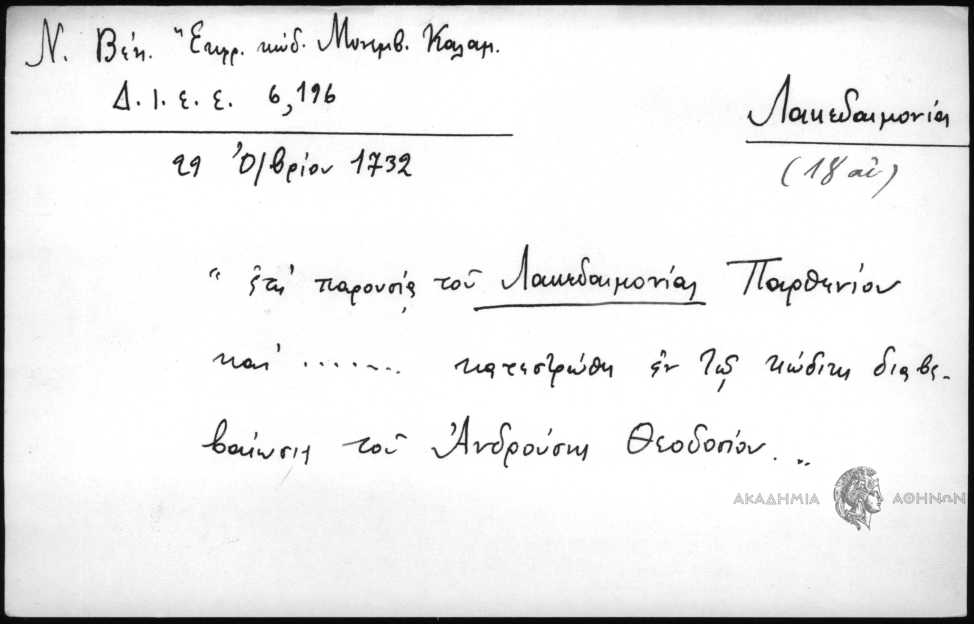 Ν. Βέη. "Εκφρ. κώδ. Μονεμβ. Καλαμ.
Δ. Ι. Ε. Ε. 6,196
Λακεδαιμονίας
(18 αἰ)
29 Ὀ/βρίου 1732
" ἐπὶ παρουσίᾳ τοῦ Λακεδαιμονίας Παρθενίου
καὶ ....... κατεστρώθη ἐν τῷ κώδικι διαβε-
βαίωσις τοῦ Ἀνδρούσης Θεοδοσίου...
ΑΚΑΔΗΜΙΑ ΑΘΗΝΩΝ